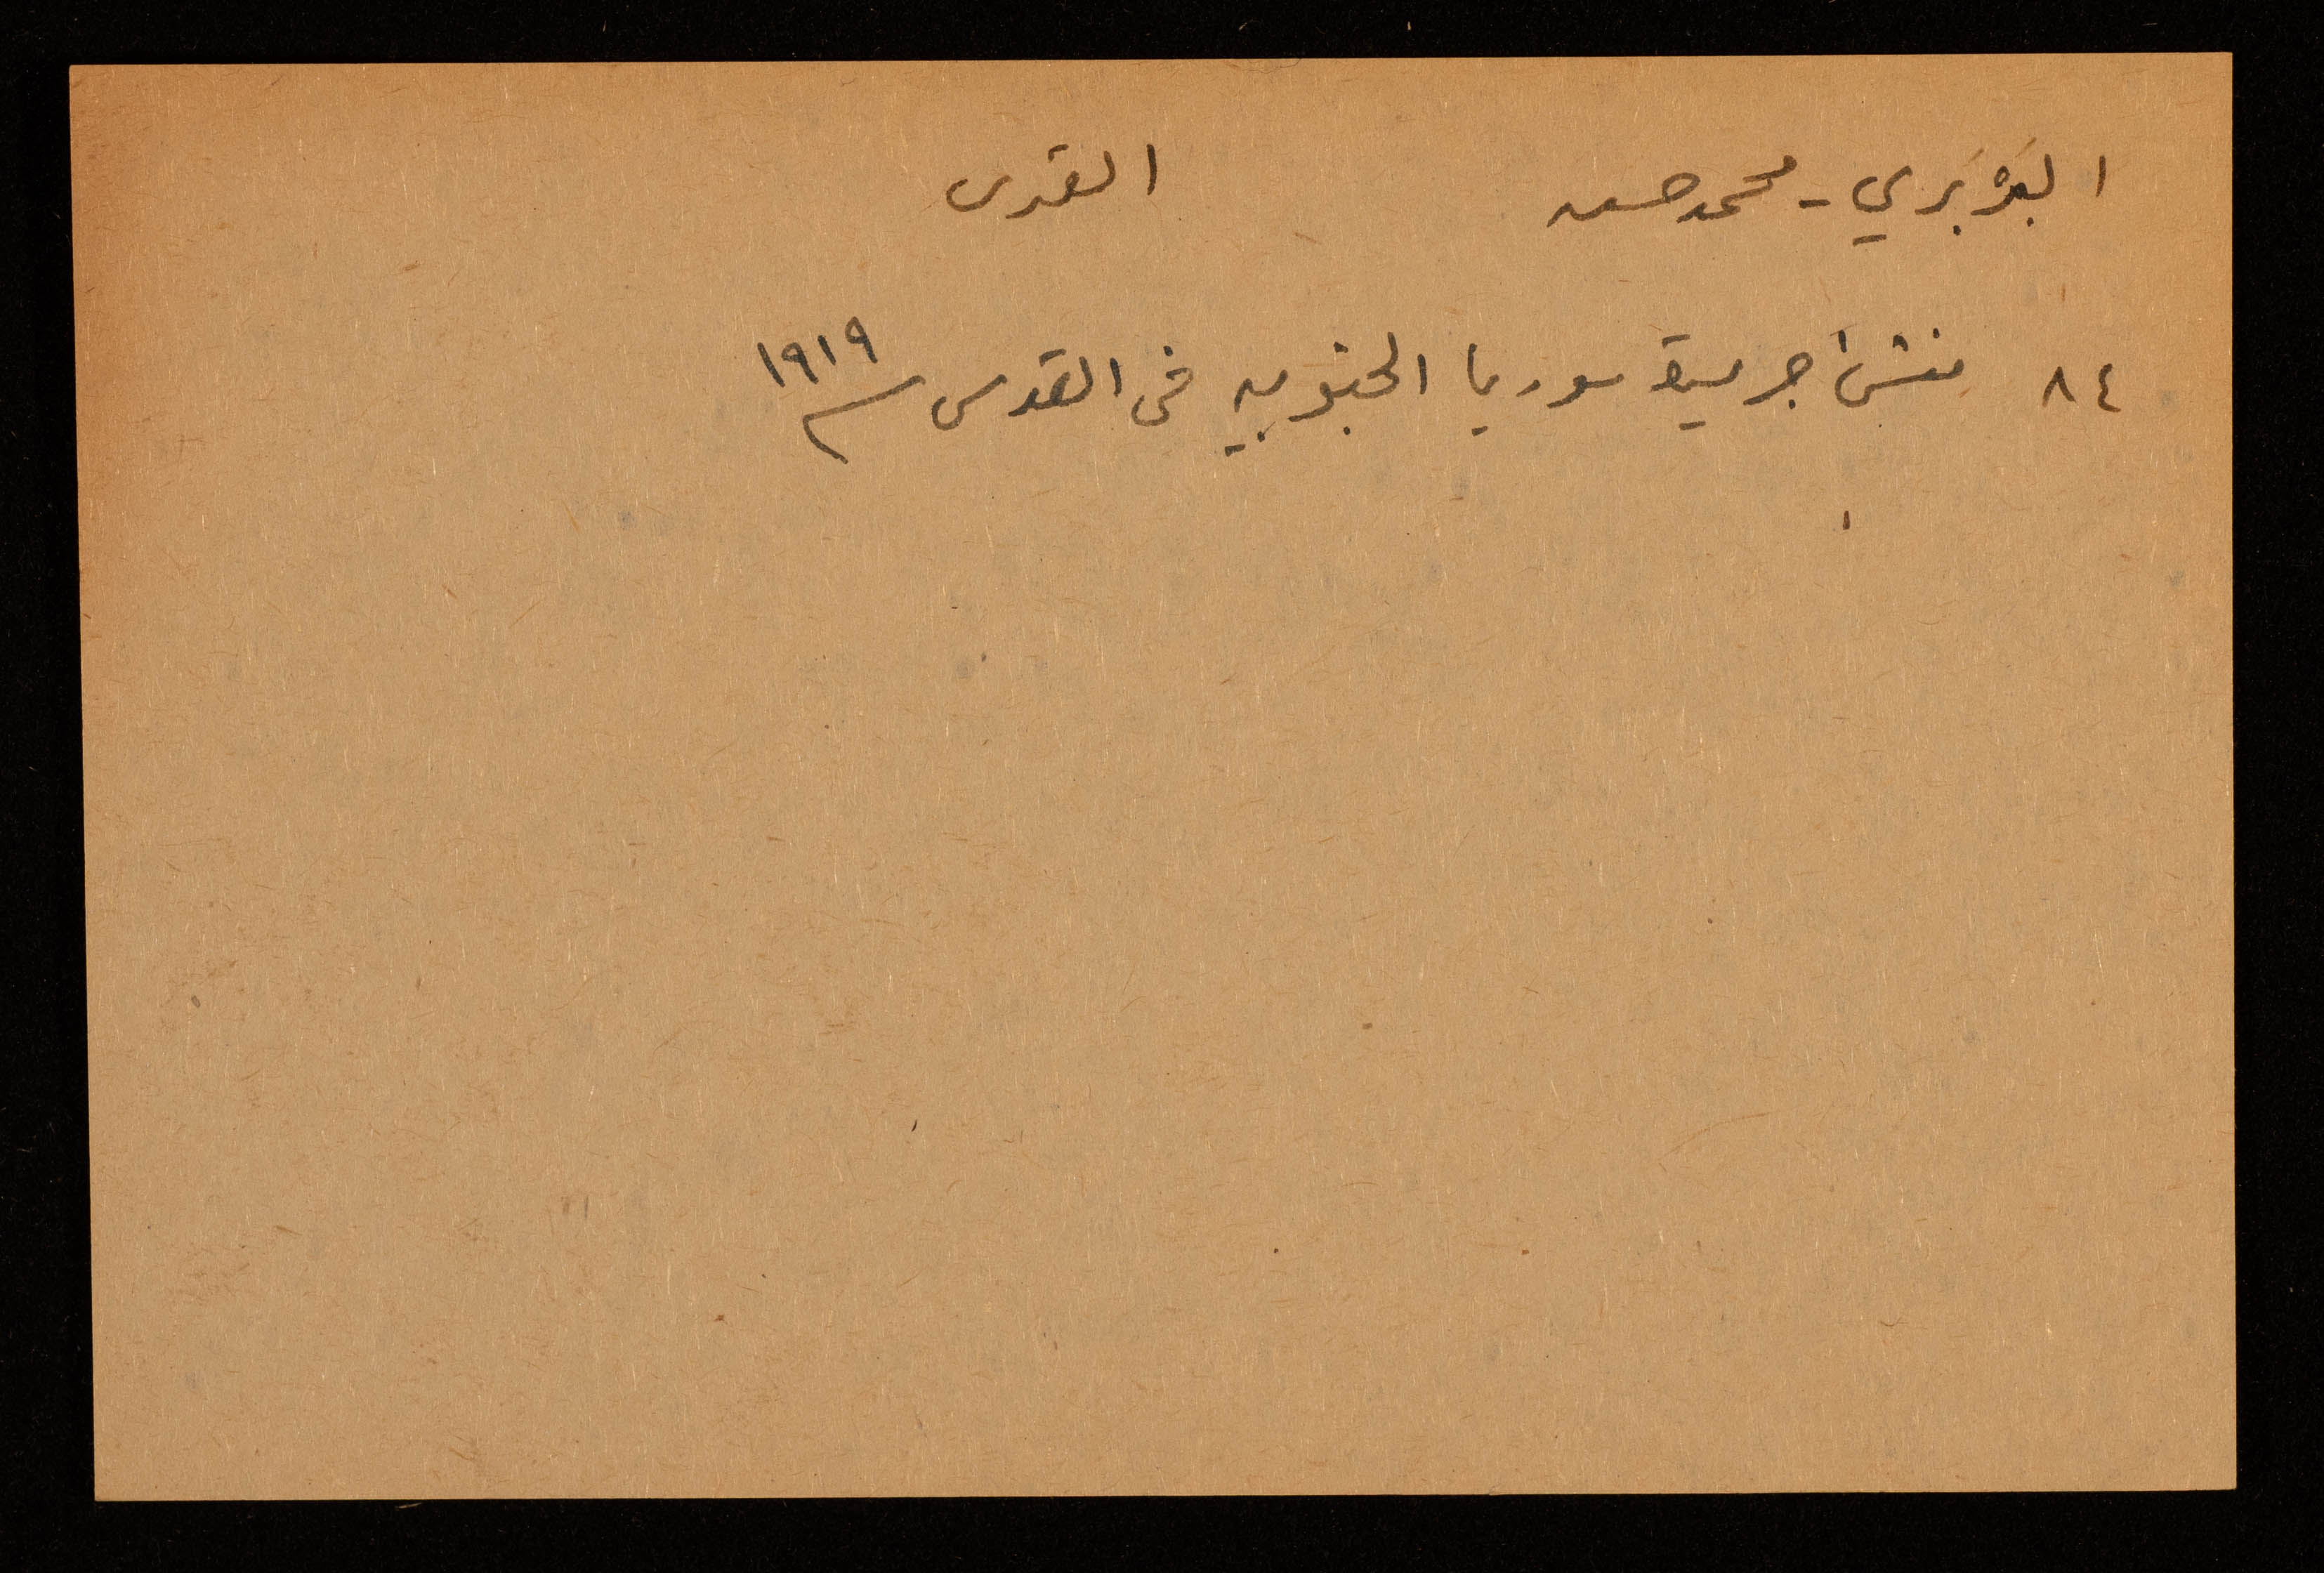 البَدْبَري - محمد حسن القدس
٨٤ منشئ جريدة سوريا الجنوبيه في القدس سنة ١٩١٩